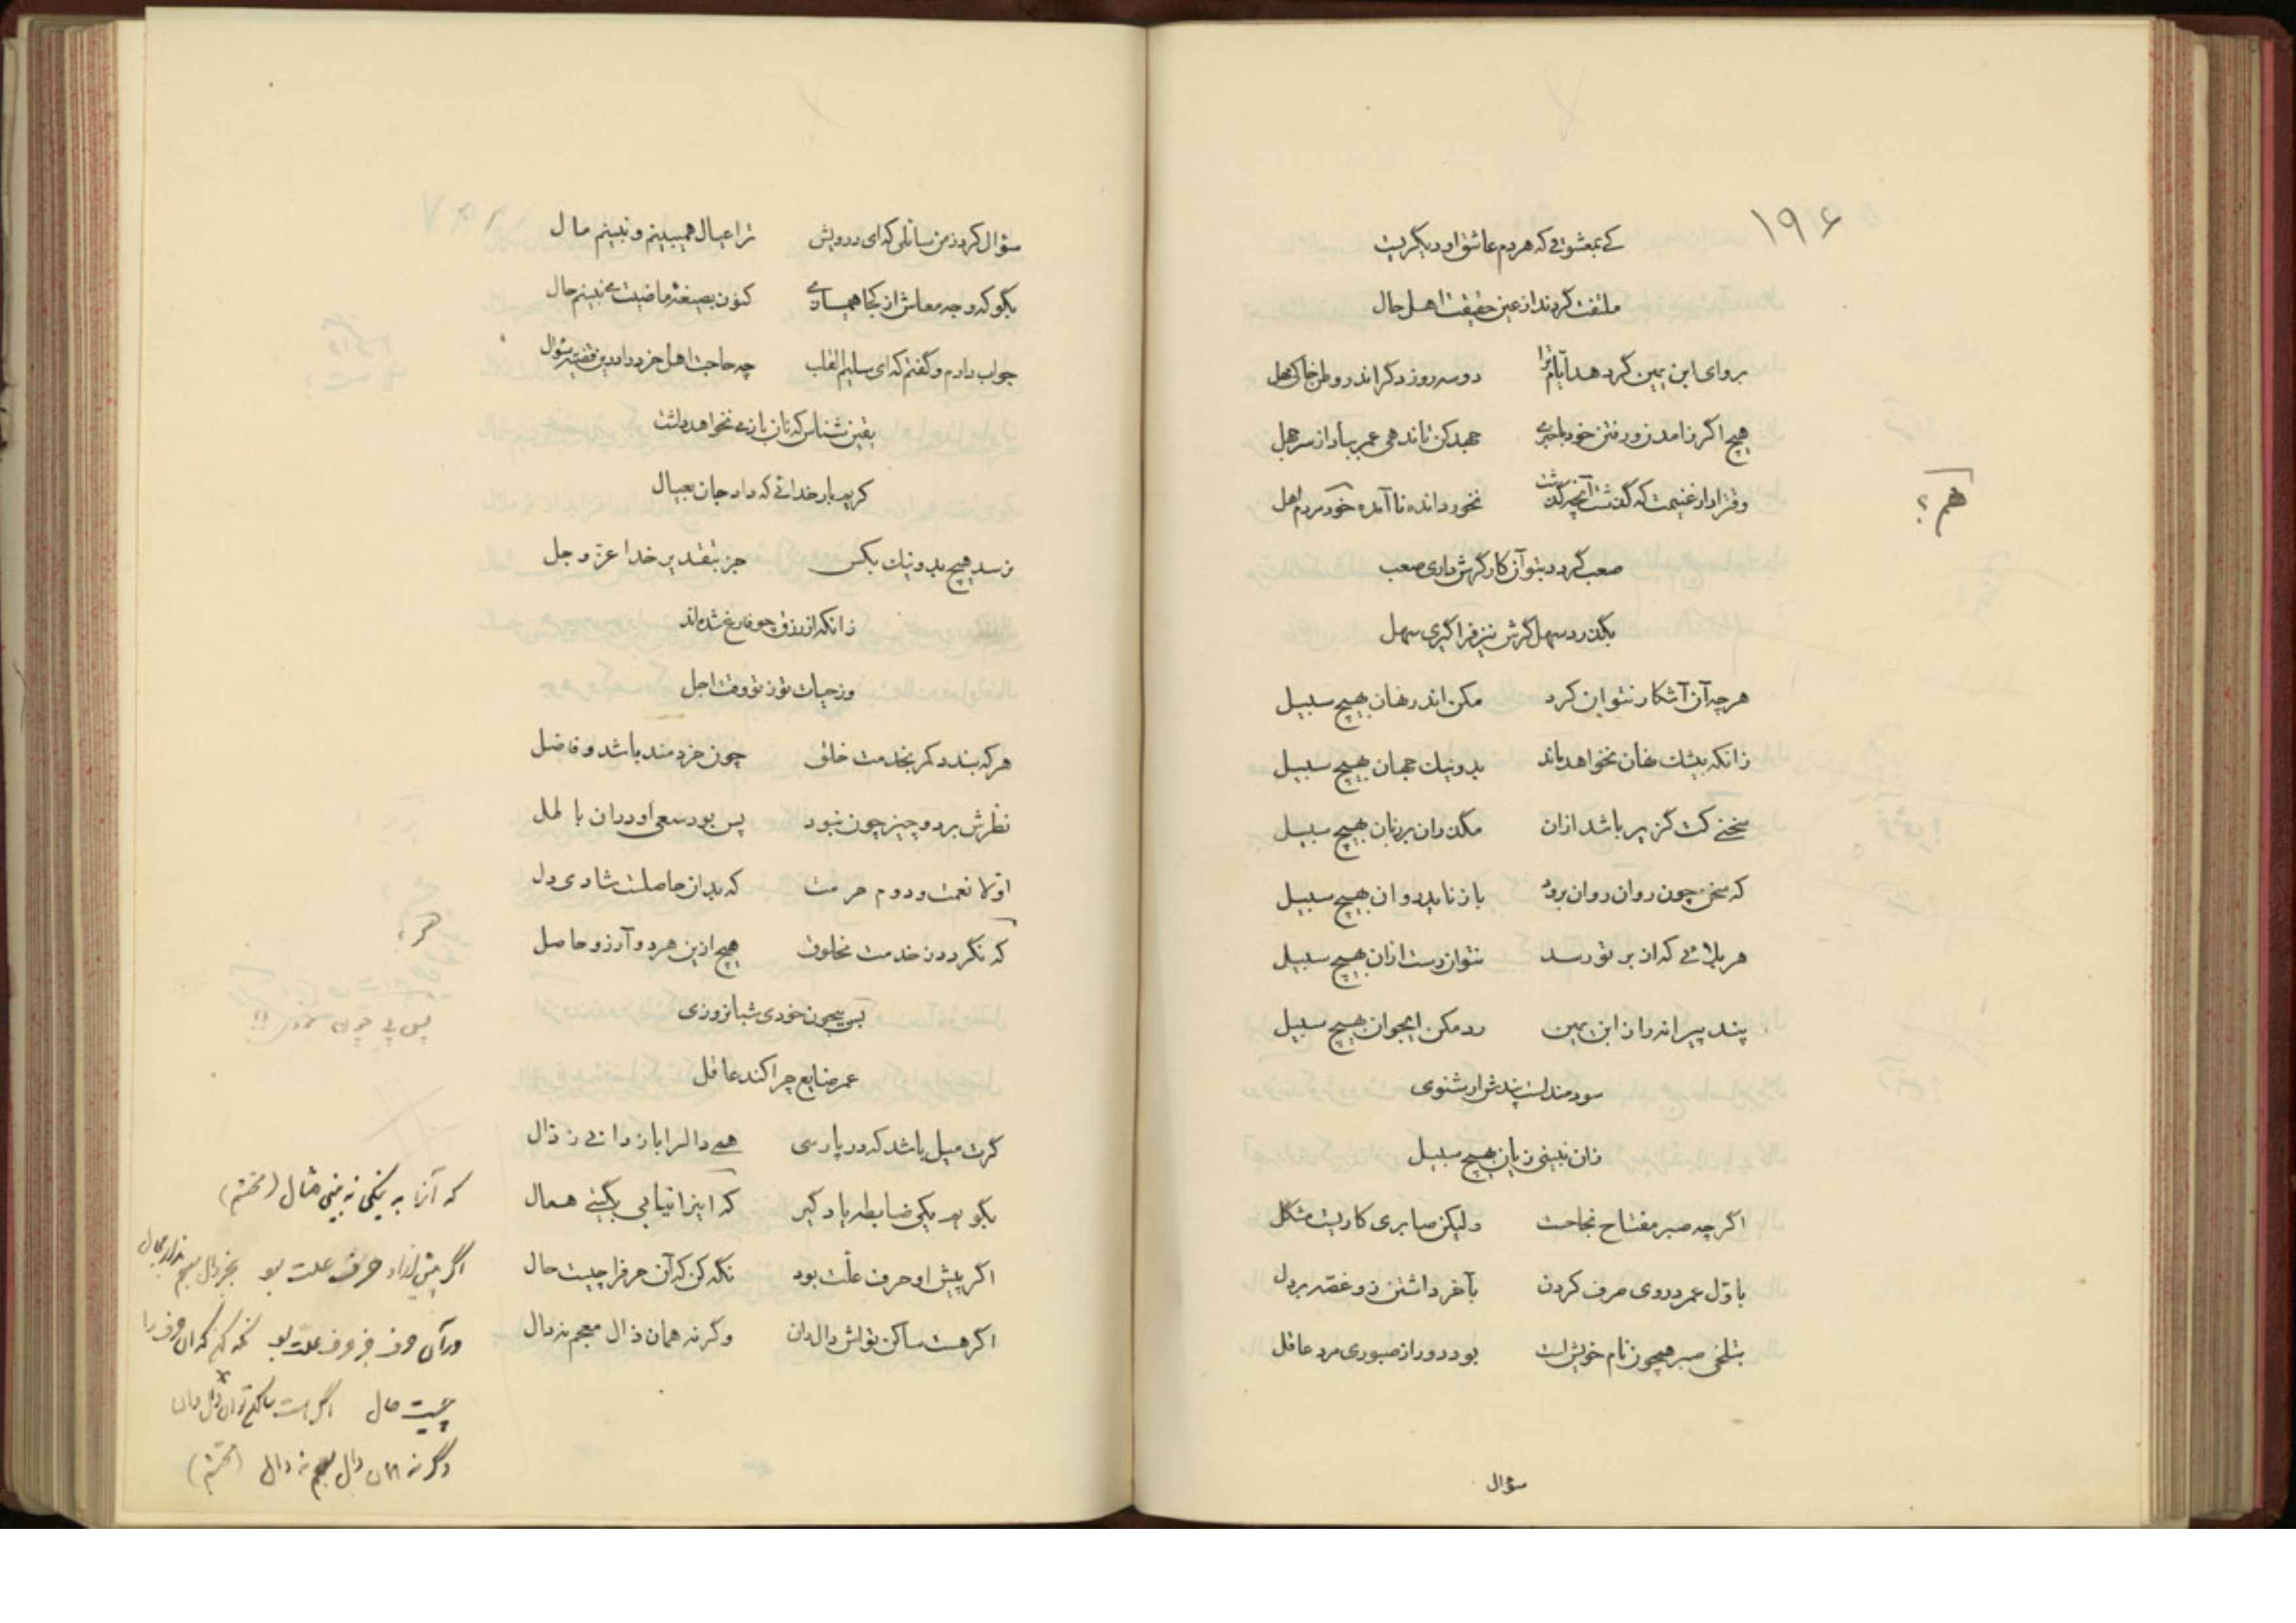 ۱۹۶
کی بمعشوقی که هر دم عاشق او دیگریست
ملتفت گردند از عین حقیقت اهل حال
برو ای ابن یمین گرد هد ایام ترا دو سه روز دگر اندر وطن خاکی محل
هیچ اگر زآمدن و رفتن خود باخبری جهد کن تا ندهی عمر بباد از سر جهل
وقت را دار غنیمت که گذشت آنچه گذشت نخورد انده ناآمده خود مردم اهل
هم ؟
صعب گردد بتو آن کار گرش داری صعب
بگذرد سهل گرش نیز فراگیری سهل
هر چه آن آشکار نتوان کرد مکن اندر نهان بهیچ سبیل
زانکه بیشک نهان نخواهد ماند بد و نیک جهان بهیچ سبیل
سخنی کت گزیر باشد ازان مگذران بر زبان بهیچ سبیل
که سخن چون روان روان برود باز ناید روان بهیچ سبیل
هر بلائی که از بر تو رسد نتوان رست ازان بهیچ سبیل
پند پیرانه را ز ابن یمین رد مکن ایجوان بهیچ سبیل
سودمندست پندش ار شنوی
زان نبینی زیان بهیچ سبیل
اگر چه صبر مفتاح نجاحست ولیکن صابری کاریست مشکل
باول عمر در وی صرف کردن بآخر داشتن زو غصه بر دل
بتلخی صبر همچون نام خویش است بود دور از صبوری مرد عاقل
سؤال
سؤال کرد ز من سائلی که ای درویش ترا عیال همی بینم و نبینم مال
بگو که وجه معاش از کجا همیسازی کنون بصیغه ماضیت می نبینم حال
جواب دادم و گفتم که ای سلیم القلب چه حاجت اهل خرد را درین قضیه سؤال
یقین شناس که نان باز می نخواهد داشت
کریم بار خدائی که داد جان بعیال
نرسد هیچ بد و نیک بکس جز بتقدیر خدا عز و جل
زانکه از رزق چو فارغ شده‌اند
وز حیات تو ز تو وقت اجل
هر که بندد کمر بخدمت خلق چون خردمند باشد و فاضل
نظرش بر دو چیز چون نبود پس بود سعی او دران باطل
اولا نعمت و دوم حرمت که بدان حاصلست شادی دل
که نگردد ز خدمت مخلوق هیچ ازین هر دو آرزو حاصل
هر ؟
بس پی چون خودی شبانروزی
عمر ضایع چرا کند عاقل
گرت میل باشد که در پارسی همی دال را باز دانی ز ذال
بگویم یکی ضابطه یاد گیر که اینرا نیابی بگیتی همال
اگر پیش او حرف علت بود نگه کن که آن حرف را چیست حال
اگر هست ساکن تو اش دال دان وگرنه همان ذال معجم نه دال
که آنرا به نیکی نه بینی مثال (محتشم)
اگر پیش ازو حرف علت بود بجز ذال معجم ندارد مجال
ور آن حرف جز حرف علت بود نگه کن که آن حرف را
چیست حال اگر هست ساکن تو آن دال دان
وگرنه همان ذال معجم نه دال (محتشم)